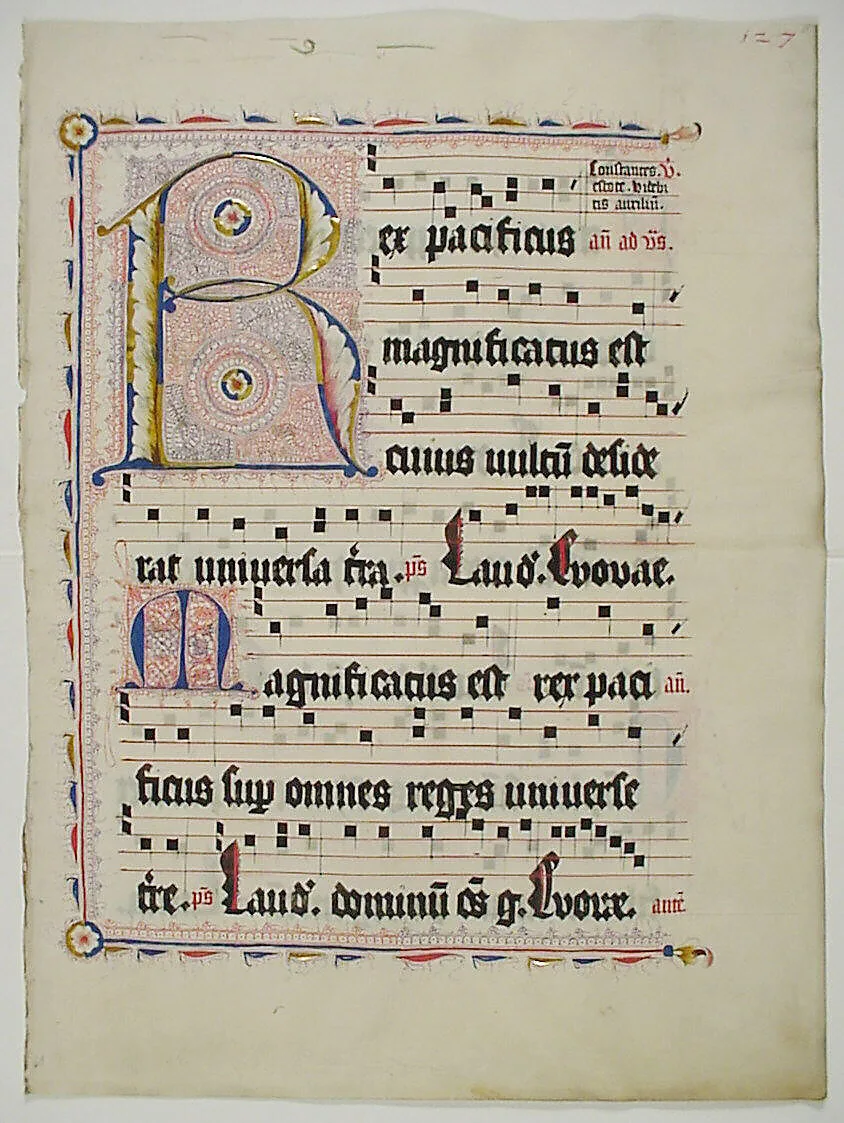 127
Constantes. v̄.
estote. videbi
tis auxiliū.
Rex pacificus añ ad v̄s.
magnificatus est
cuius uultū deside
rat uniuersa t̄ra. p̄s Laud. Evovae.
Magnificatus est rex paci añ.
ficus sup omnes reges uniuerse
t̄re. p̄s Laud. dominū om̄s g. Evovae. ante